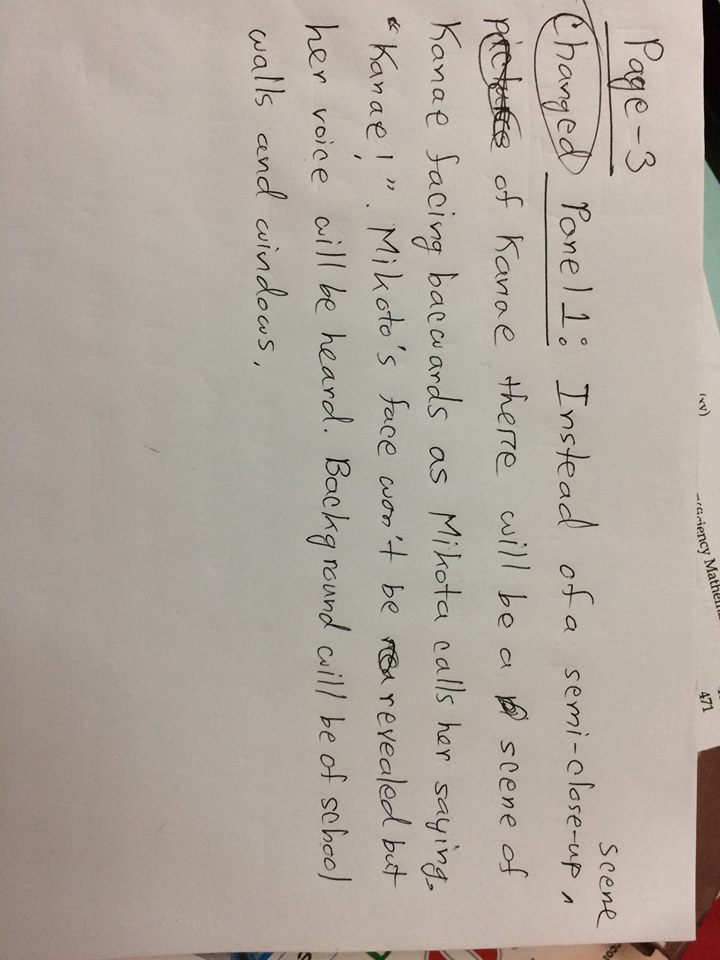 (xv)
efficiency Mathem
471
Page-3
Changed Panel 1: Instead of a semi-close-up ^ scene
of Kanae there will be a scene of
Kanae facing bacwards as Mikota calls her saying,
"Kanae!". Mikoto's face won't be revealed but
her voice will be heard. Background will be of school
walls and windows.